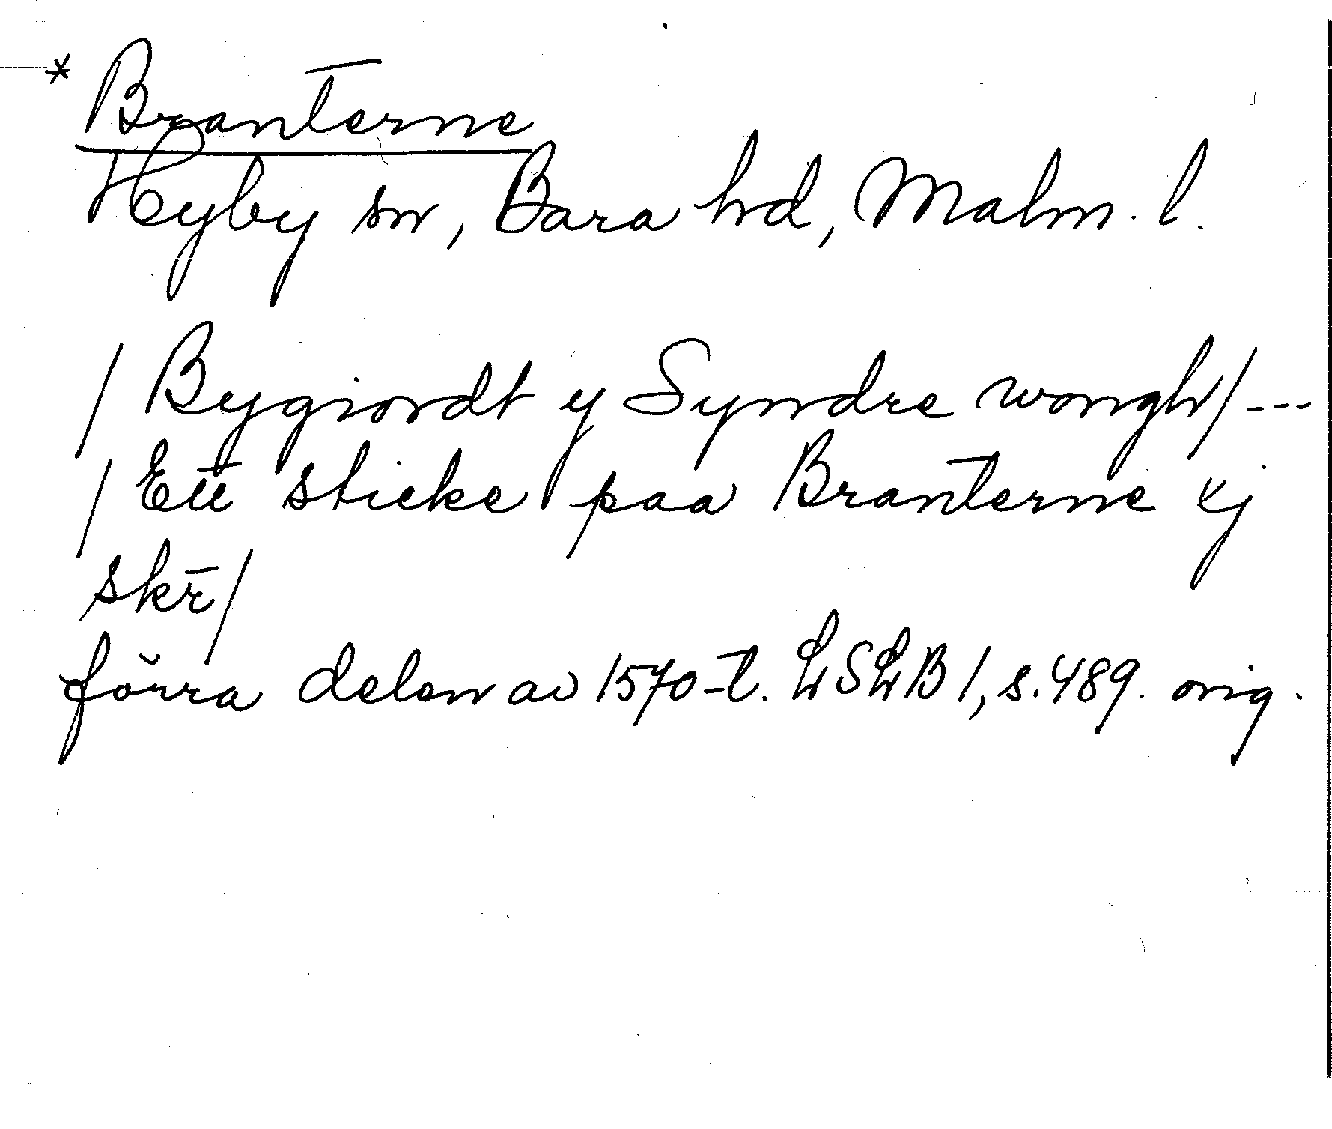 * Branterne
Hyby sn, Bara hd, Malm. l.
/ Bygiordt y Syndre wongh / ---
/ Ett sticke paa Branterne xj
skr /
förra delen av 1570-t. LSLB 1, s. 489. orig.